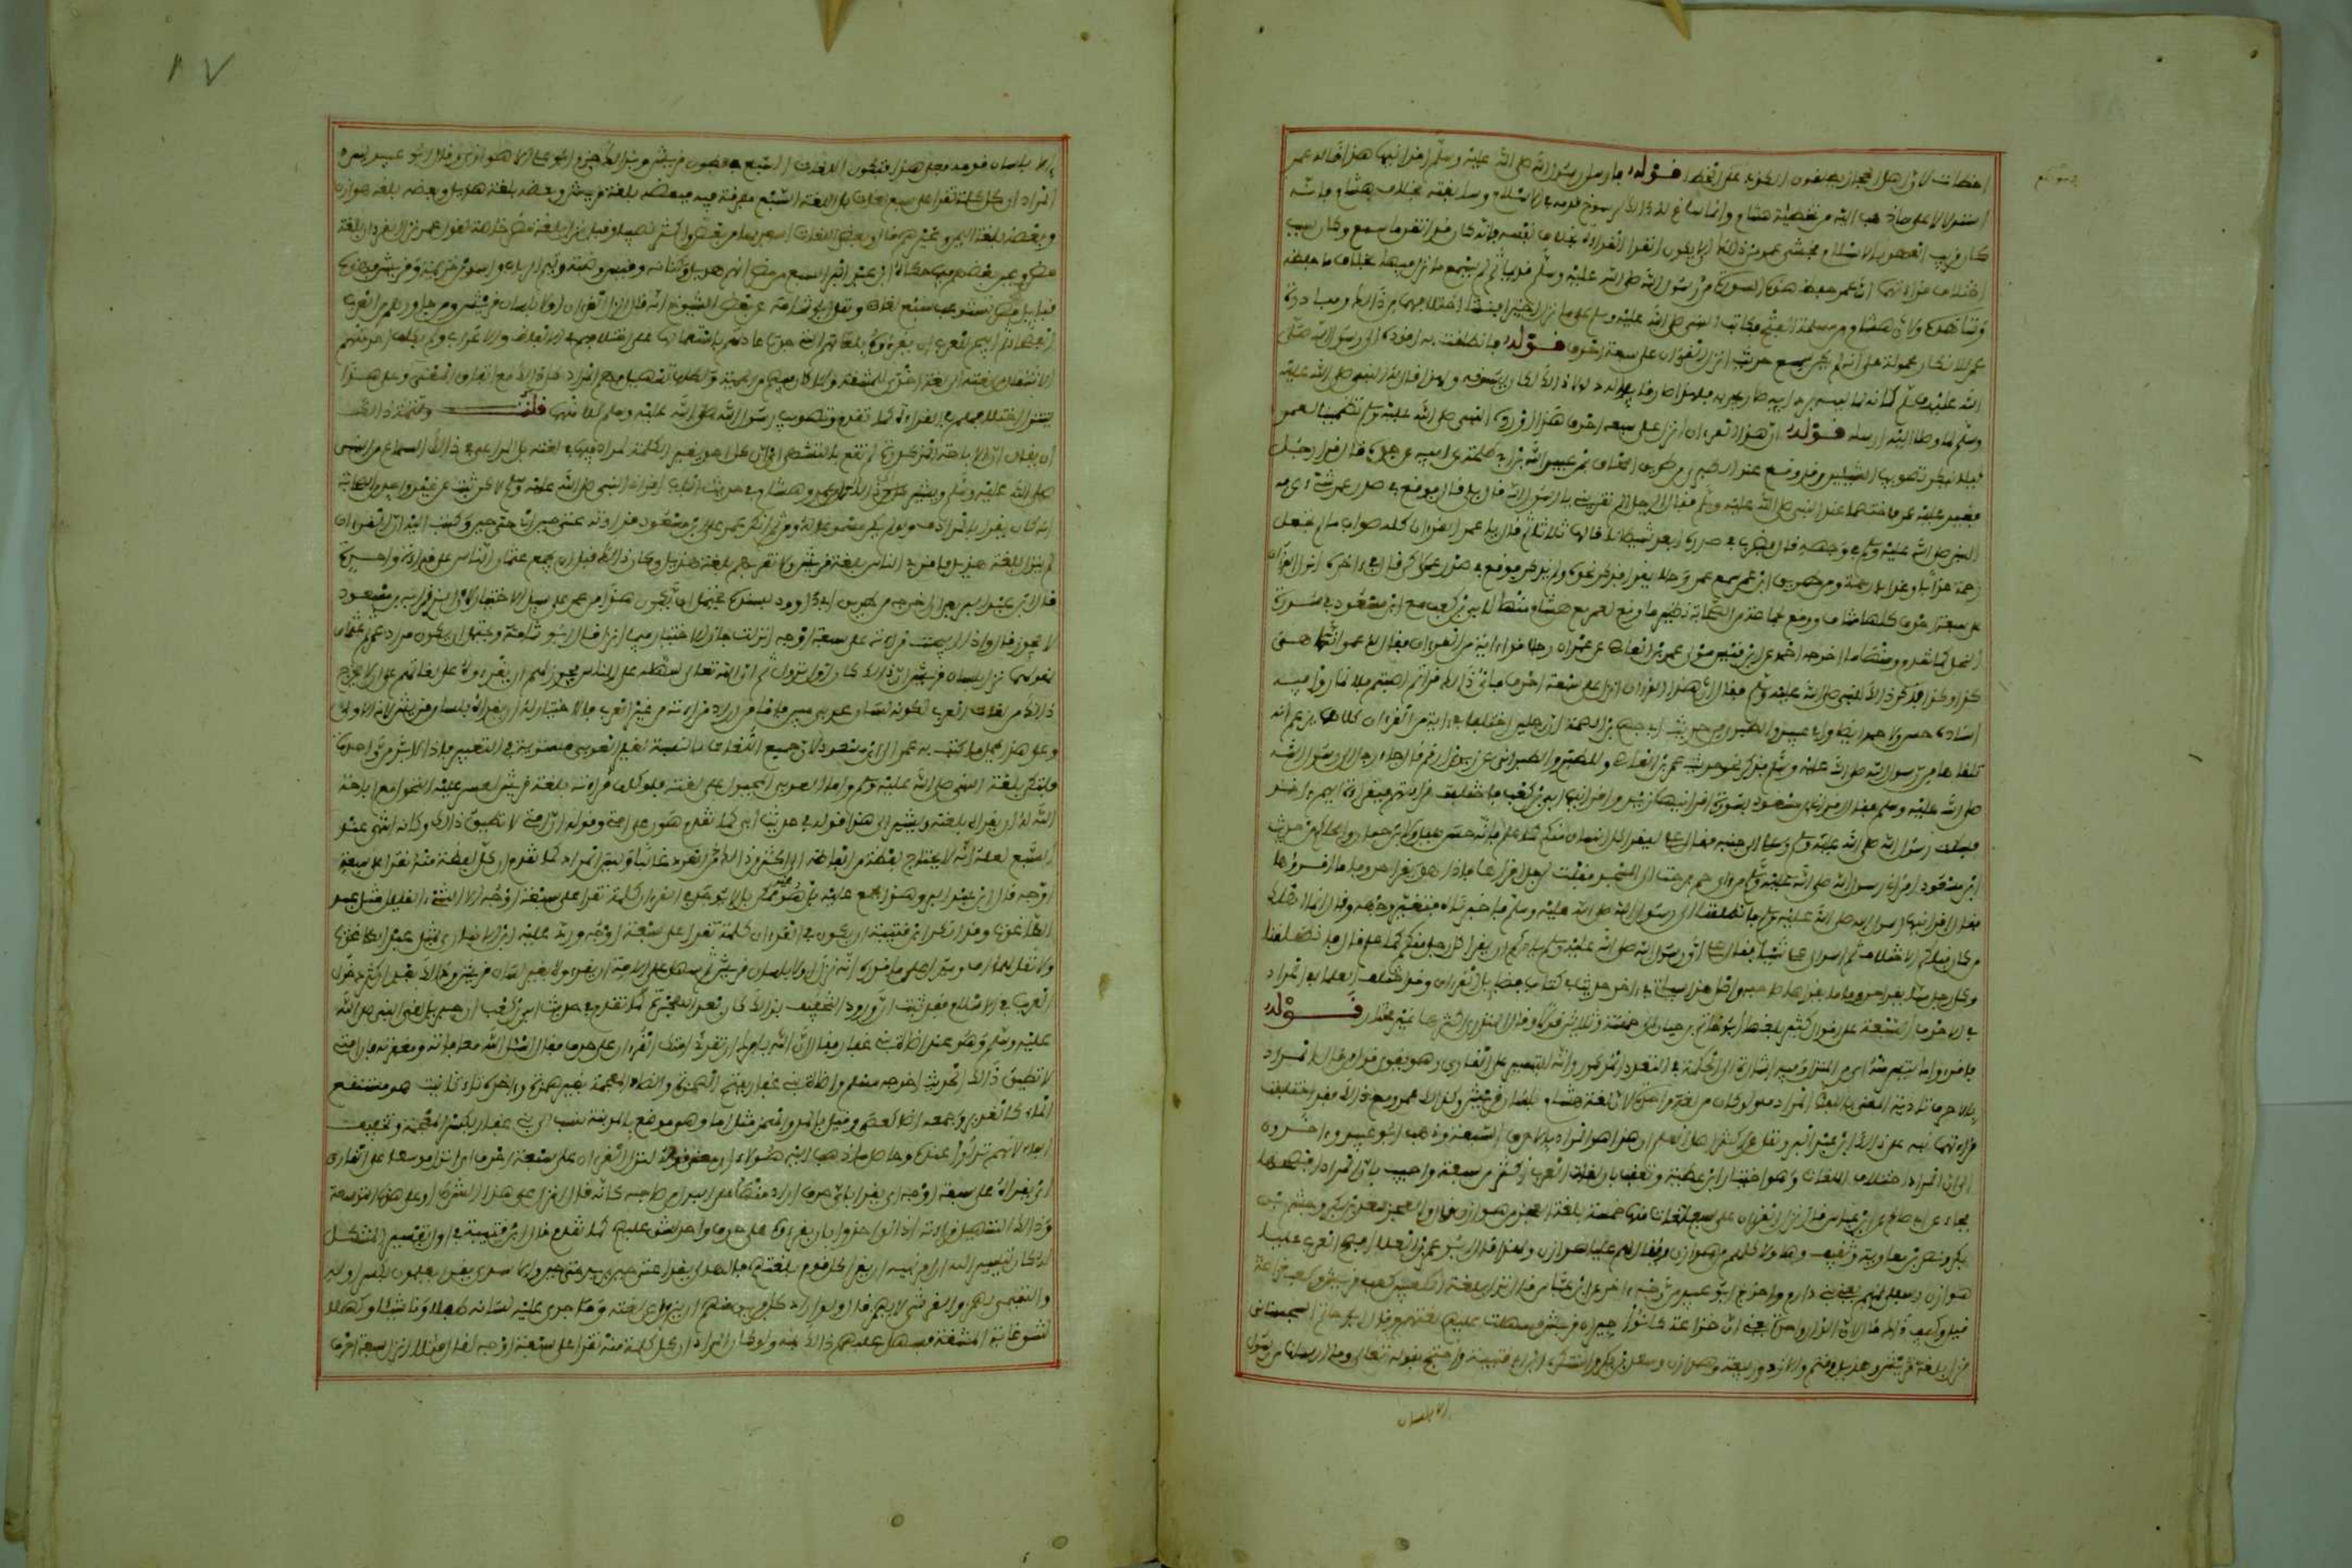 اخطات لان اهل الحجاز يطلقون الكذب على الخطا قوله فان رسول الله صلى الله عليه وسلم اقرانيها هذا قاله عمر
استدلالا على ما ذهب اليه من تخطئة هشام وانما ساغ له ذلك لرسوخ قدمه في الاسلام وسابقته بخلاف هشام فانه
كان قريب العهد بالاسلام فخشي عمر من ذلك ان لا يكون اتقن القراءة بخلاف نفسه فانه كان قد اتقن ما سمع وكان سبب
اختلاف قراءتهما ان عمر حفظ هذه السورة من رسول الله صلى الله عليه وسلم قديما ثم لم يسمع ما نزل فيها بخلاف ما حفظه
وشاهده ولان هشام من مسلمة الفتح فكان النبي صلى الله عليه وسلم على ما نزل اخيرا فنشا اختلافهما من ذلك ومبادرة
عمر للانكار محمولة على انه لم يكن سمع حديث انزل القران على سبعة احرف قوله فانطلقت به اقوده الى رسول الله صلى
الله عليه وسلم كانه لما لببه بردائه صار يجره به فلهذا صار قائدا له ولولا ذلك لكان يسوقه ولهذا قال له النبي صلى الله عليه
وسلم لما وصلا اليه ارسله قوله ان هذا القران انزل على سبعة احرف هذا اورده النبي صلى الله عليه وسلم تطمينا لعمر
ليلا ينكر تصويب الشيئين وقد وقع عند الطبري من طريق اسحاق بن عبد الله بن ابي طلحة عن ابيه عن جده قال قرا رجل
فغير عليه عمر فاختصما عند النبي صلى الله عليه وسلم فقال الرجل الم تقريني يا رسول الله قال بلى قال فوقع في صدر عمر شيء عرفه
النبي صلى الله عليه وسلم في وجهه قال فضرب في صدره ابعد شيطانا قالها ثلاثا ثم قال يا عمر القران كله صواب ما لم تجعل
رحمة عذابا وعذابا رحمة ومن طريق ابن عمر سمع عمر رجلا يقرا فذكر نحوه ولم يذكر فوقع في صدر عمر لكن قال في اخره انزل القران
على سبعة احرف كلها شاف ووقع لجماعة من الصحابة نظير ما وقع لعمر مع هشام منها لابي بن كعب مع ابن مسعود في سورة
النحل كما تقدم ومنها ما اخرجه احمد عن ابي قيس مولى عمرو بن العاص عن عمرو ان رجلا قرا اية من القران فقال له عمرو انما هي
كذا وكذا فذكر ذلك للنبي صلى الله عليه وسلم فقال ان هذا القران انزل على سبعة احرف فاي ذلك قراتم اصبتم فلا تماروا فيه
اسناده حسن ولاحمد ايضا وابي عبيد والطبري من حديث ابي جهيم بن الصمة ان رجلين اختلفا في اية من القران كلاهما يزعم انه
تلقاها من رسول الله صلى الله عليه وسلم فذكر نحو حديث عمرو بن العاص وللطبري والطبراني عن زيد بن ارقم قال جاء رجل الى رسول الله
صلى الله عليه وسلم فقال اقراني ابن مسعود سورة اقرانيها زيد واقرانيها ابي بن كعب فاختلفت قراءتهم فبقراءة ايهم اخذ
فسكت رسول الله صلى الله عليه وسلم وعلي الى جنبه فقال علي ليقرا كل انسان منكم كما علم فانه حسن جميل ولابن حبان والحاكم من حديث
ابن مسعود اقراني رسول الله صلى الله عليه وسلم سورة من ال حم فرحت الى المسجد فقلت لرجل اقراها فاذا هو يقرا حروفا ما اقرؤها
فقال اقرانيها رسول الله صلى الله عليه وسلم فانطلقنا الى رسول الله صلى الله عليه وسلم فاخبرناه فتغير وجهه وقال انما اهلك
من كان قبلكم الاختلاف ثم اسر الى علي شيئا فقال علي ان رسول الله صلى الله عليه وسلم يامركم ان يقرا كل رجل منكم كما علم قال فانطلقنا
وكل رجل منا يقرا حروفا ما يقراها صاحبه واصل هذا سياتي في اخر حديث في كتاب فضائل القران وقد اختلف العلماء في المراد
في الاحرف السبعة على اقوال كثيرة بلغها ابو حاتم بن حبان الى خمسة وثلاثين قولا وقال المنذري اكثرها غير مختار قوله
فاقرءوا ما تيسر منه اي من المنزل وفيه اشارة الى الحكمة في التعدد المذكور وانه للتيسير على القارئ وهو يقوي قول من قال المراد
بالاحرف تادية المعنى باللفظ المرادف ولو كان من لغة واحدة لان لغة هشام بلسان قريش وكذلك عمر ومع ذلك فقد اختلفت
قراءتهما نبه على ذلك ابن عبد البر ونقل عن اكثر اهل العلم ان هذا هو المراد بالاحرف السبعة وذهب ابو عبيد واخرون
الى ان المراد اختلاف اللغات وهو اختيار ابن عطية وتعقب بان لغات العرب اكثر من سبعة واجيب بان المراد افصحها
فجاء عن ابي صالح عن ابن عباس قال نزل القران على سبع لغات منها خمسة بلغة العجز من هوازن قال والعجز سعد بن بكر وجشم بن
بكر ونصر بن معاوية وثقيف وهاولاء كلهم من هوازن ويقال لهم عليا هوازن ولهذا قال ابو عمرو بن العلاء افصح العرب عليا
هوازن وسفلى تميم يعني بني دارم واخرج ابو عبيد من وجه اخر عن ابن عباس قال نزل بلغة الكعبين كعب قريش وكعب خزاعة
قيل وكيف ذلك قال لان الدار واحدة يعني ان خزاعة كانوا جيران قريش فسهلت عليهم لغتهم وقال ابو حاتم السجستاني
نزل بلغة قريش وهذيل وتيم والازد وربيعة وهوازن وسعد بن بكر واستنكره ابن قتيبة واحتج بقوله تعالى وما ارسلنا من رسول
الا بلسان
٨٧
الا بلسان قومه فعلى هذا فتكون اللغات السبع في بطون قريش وبذلك جزم ابو علي الاهوازي وقال ابو عبيد ليس
المراد ان كل كلمة تقرا على سبع لغات بل اللغات السبع مفرقة فيه فبعضه بلغة قريش وبعضه بلغة هذيل وبعضه بلغة هوازن
وبعضه بلغة اليمن وغيرهم قال وبعض اللغات اسعد بها من بعض واكثر نصيبا وقيل نزل بلغة مضر خاصة لقول عمر نزل القران بلغة
مضر وعين بعضهم فيما حكاه ابن عبد البر السبع من مضر انهم هذيل وكنانة وقيس وضبة وتيم الرباب واسد بن خزيمة وقريش فهذه
قبائل مضر تستوعب سبع لغات ونقل ابو شامة عن بعض الشيوخ انه قال انزل القران اولا بلسان قريش ومن جاورهم من العرب
الفصحاء ثم ابيح للعرب ان يقرءوه بلغاتهم التي جرت عادتهم باستعمالها على اختلافهم في الالفاظ والاعراب ولم يكلف احد منهم
الانتقال من لغته الى لغة اخرى للمشقة ولما كان فيهم من الحمية ولطلب تسهيل فهم المراد كل ذلك مع اتفاق المعنى وعلى هذا
يتنزل اختلافهم في القراءة كما تقدم وتصويب رسول الله صلى الله عليه وسلم كلا منهم قلت وتتمة ذلك
ان يقال ان الاباحة المذكورة لم تقع بالتشهي اي ان كل احد يغير الكلمة بمرادفها في لغته بل المراعى في ذلك السماع من النبي
صلى الله عليه وسلم ويشير الى ذلك قول كل من عمر وهشام في حديث الباب اقراني النبي صلى الله عليه وسلم لكن ثبت عن غير واحد من الصحابة
انه كان يقرا بالمرادف ولو لم يكن مسموعا له ومن ثم انكر عمر على ابن مسعود قراءته عتى حين اي حتى حين وكتب اليه ان القران
لم ينزل بلغة هذيل فاقرئ الناس بلغة قريش ولا تقرئهم بلغة هذيل وكان ذلك قبل ان يجمع عثمان الناس على قراءة واحدة
قال ابن عبد البر بعد ان اخرجه من طريق ابي داوود بسنده يحتمل ان يكون هذا من عمر على سبيل الاختيار لا ان ما قرا به ابن مسعود
لا يجوز قال واذا ابيحت قراءته على سبعة اوجه انزلت جاز الاختيار فيما انزل قال ابو شامة ويحتمل ان يكون مراد عمر ثم عثمان
بقولهما نزل بلسان قريش ان ذلك كان اول نزوله ثم ان الله تعالى سهله على الناس فجوز لهم ان يقرءوه على لغاتهم على ان لا يخرج
ذلك من لغات العرب لكونه بلسان عربي مبين فاما من اراد قراءته من غير العرب فالاختيار له ان يقراه بلسان قريش لانه الاولى
وعلى هذا يحمل ما كتب به عمر الى ابن مسعود لان جميع اللغات بالنسبة لغير العربي مستوية في التعبير فاذا لا بد من واحدة
فلتكن بلغة النبي صلى الله عليه وسلم واما العربي المجبول على لغته فلو كلف قراءته بلغة قريش لعسر عليه التحول مع اباحة
الله له ان يقراه بلغته ويشير الى هذا قوله في حديث ابي كما تقدم هون على امتي وقوله ان امتي لا تطيق ذلك وكانه انتهى عند
السبع لعلمه انه لا يحتاج لفظة من الفاظه الى اكثر من ذلك العدد غالبا وليس المراد كما تقدم ان كل لفظة منه تقرا على سبعة
اوجه قال ابن عبد البر وهذا مجمع عليه بل هو غير ممكن بل لا يوجد في القران كلمة تقرا على سبعة اوجه الا الشيء القليل مثل عبد
الطاغوت وقد انكر ابن قتيبة ان يكون في القران كلمة تقرا على سبعة اوجه ورد عليه ابن الانباري بمثل عبد الطاغوت
ولا تقل لهما اف ويدل على ما قرره انه نزل اولا بلسان قريش ثم سهل على الامة ان يقرءوه بغير لسان قريش وذلك بعد ان كثر دخول
العرب في الاسلام فقد ثبت ان ورود التخفيف بذلك كان بعد الهجرة كما تقدم في حديث ابي بن كعب ان جبريل لقي النبي صلى الله
عليه وسلم وهو عند اضاة بني غفار فقال ان الله يامرك ان تقرئ امتك القران على حرف فقال اسئل الله معافاته ومغفرته فان امتي
لا تطيق ذلك الحديث اخرجه مسلم واضاة بني غفار بفتح الهمزة والضاد المعجمة بغير همزة واخره تاء تانيث هو مستنقع
الماء كالغدير وجمعه اضا كعصى وقيل بالمد والهمز مثل اناء وهو موضع بالمدينة ينسب الى بني غفار بكسر المعجمة وتخفيف
الفاء لانهم نزلوا عنده وحاصل ما ذهب اليه هؤلاء ان معنى قوله انزل القران على سبعة احرف اي انزل موسعا على القارئ
ان يقراه على سبعة اوجه اي يقرا باي حرف اراد منها على البدل من صاحبه كانه قال انزل على هذا الشرط او على هذه التوسعة
وذلك لتسهيل قراءته اذ لو اخذوا بان يقرءوه على حرف واحد لشق عليهم كما تقدم قال ابن قتيبة في اول تفسير المشكل
له كان من تيسير الله ان امر نبيه ان يقرا كل قوم بلغتهم فالهذلي يقرا عتى حين يريد حتى حين والاسدي يقرا تعلمون بكسر اوله
والتميمي يهمز والقرشي لا يهمز قال ولو اراد كل فريق منهم ان يزول عن لغته وما جرى عليه لسانه طفلا وناشيا وكهلا
لشق عليه غاية المشقة فيسر عليهم ذلك بمنه ولو كان المراد ان كل كلمة منه تقرا على سبعة اوجه لقال مثلا انزل سبعة احرف